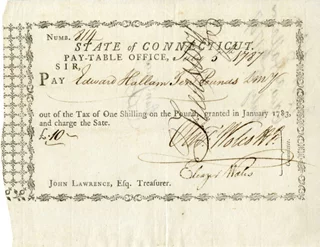 Numb. 
STATE of CONNECTICUT.
PAY-TABLE OFFICE, 5th 1787
SIR,
PAY Edward Hallam Ten Pounds L My
out of the Tax of One Shilling on the Pound, granted in January 1783,
and charge the Sate.
£10
Eleazer Wales
JOHN LAWRENCE, Esq. Treasurer.